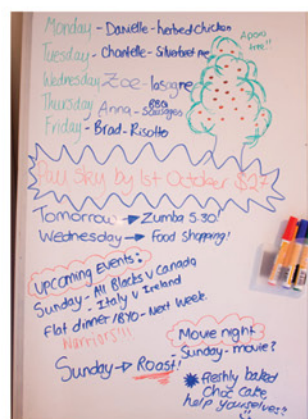 Monday - Danielle - herbed chicken
Tuesday - Chantelle - Silverbeet pie
Wednesday Zoe - lasagne
Thursday Anna - BBQ Sausages
Friday - Brad - Risotto
tree!!
Pay Sky by 1st October $27
Tomorrow → Zumba 5.30!
Wednesday → Food Shopping!
Upcoming Events:
Sunday - All Blacks v Canada
- Italy v Ireland
Flat dinner/BYO - Next Week.
Warriors!!!
Movie night
Sunday - movie?
Sunday → Roast!
freshly baked
Choc cake,
help yourselves?